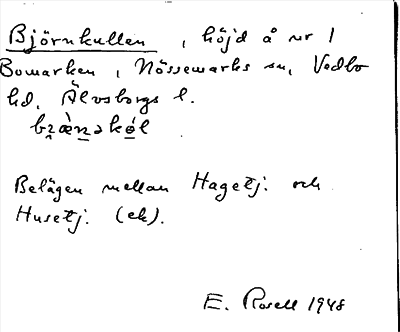 Björnkullen, höjd å nr 1
Bomarken, Nössemarks sn, Vedbo
hd, Älvsborgs l.
bɽæ̀nəkɵ́l
Belägen mellan Hagetj. och
Husetj. (ek).
E. Rosell 1948